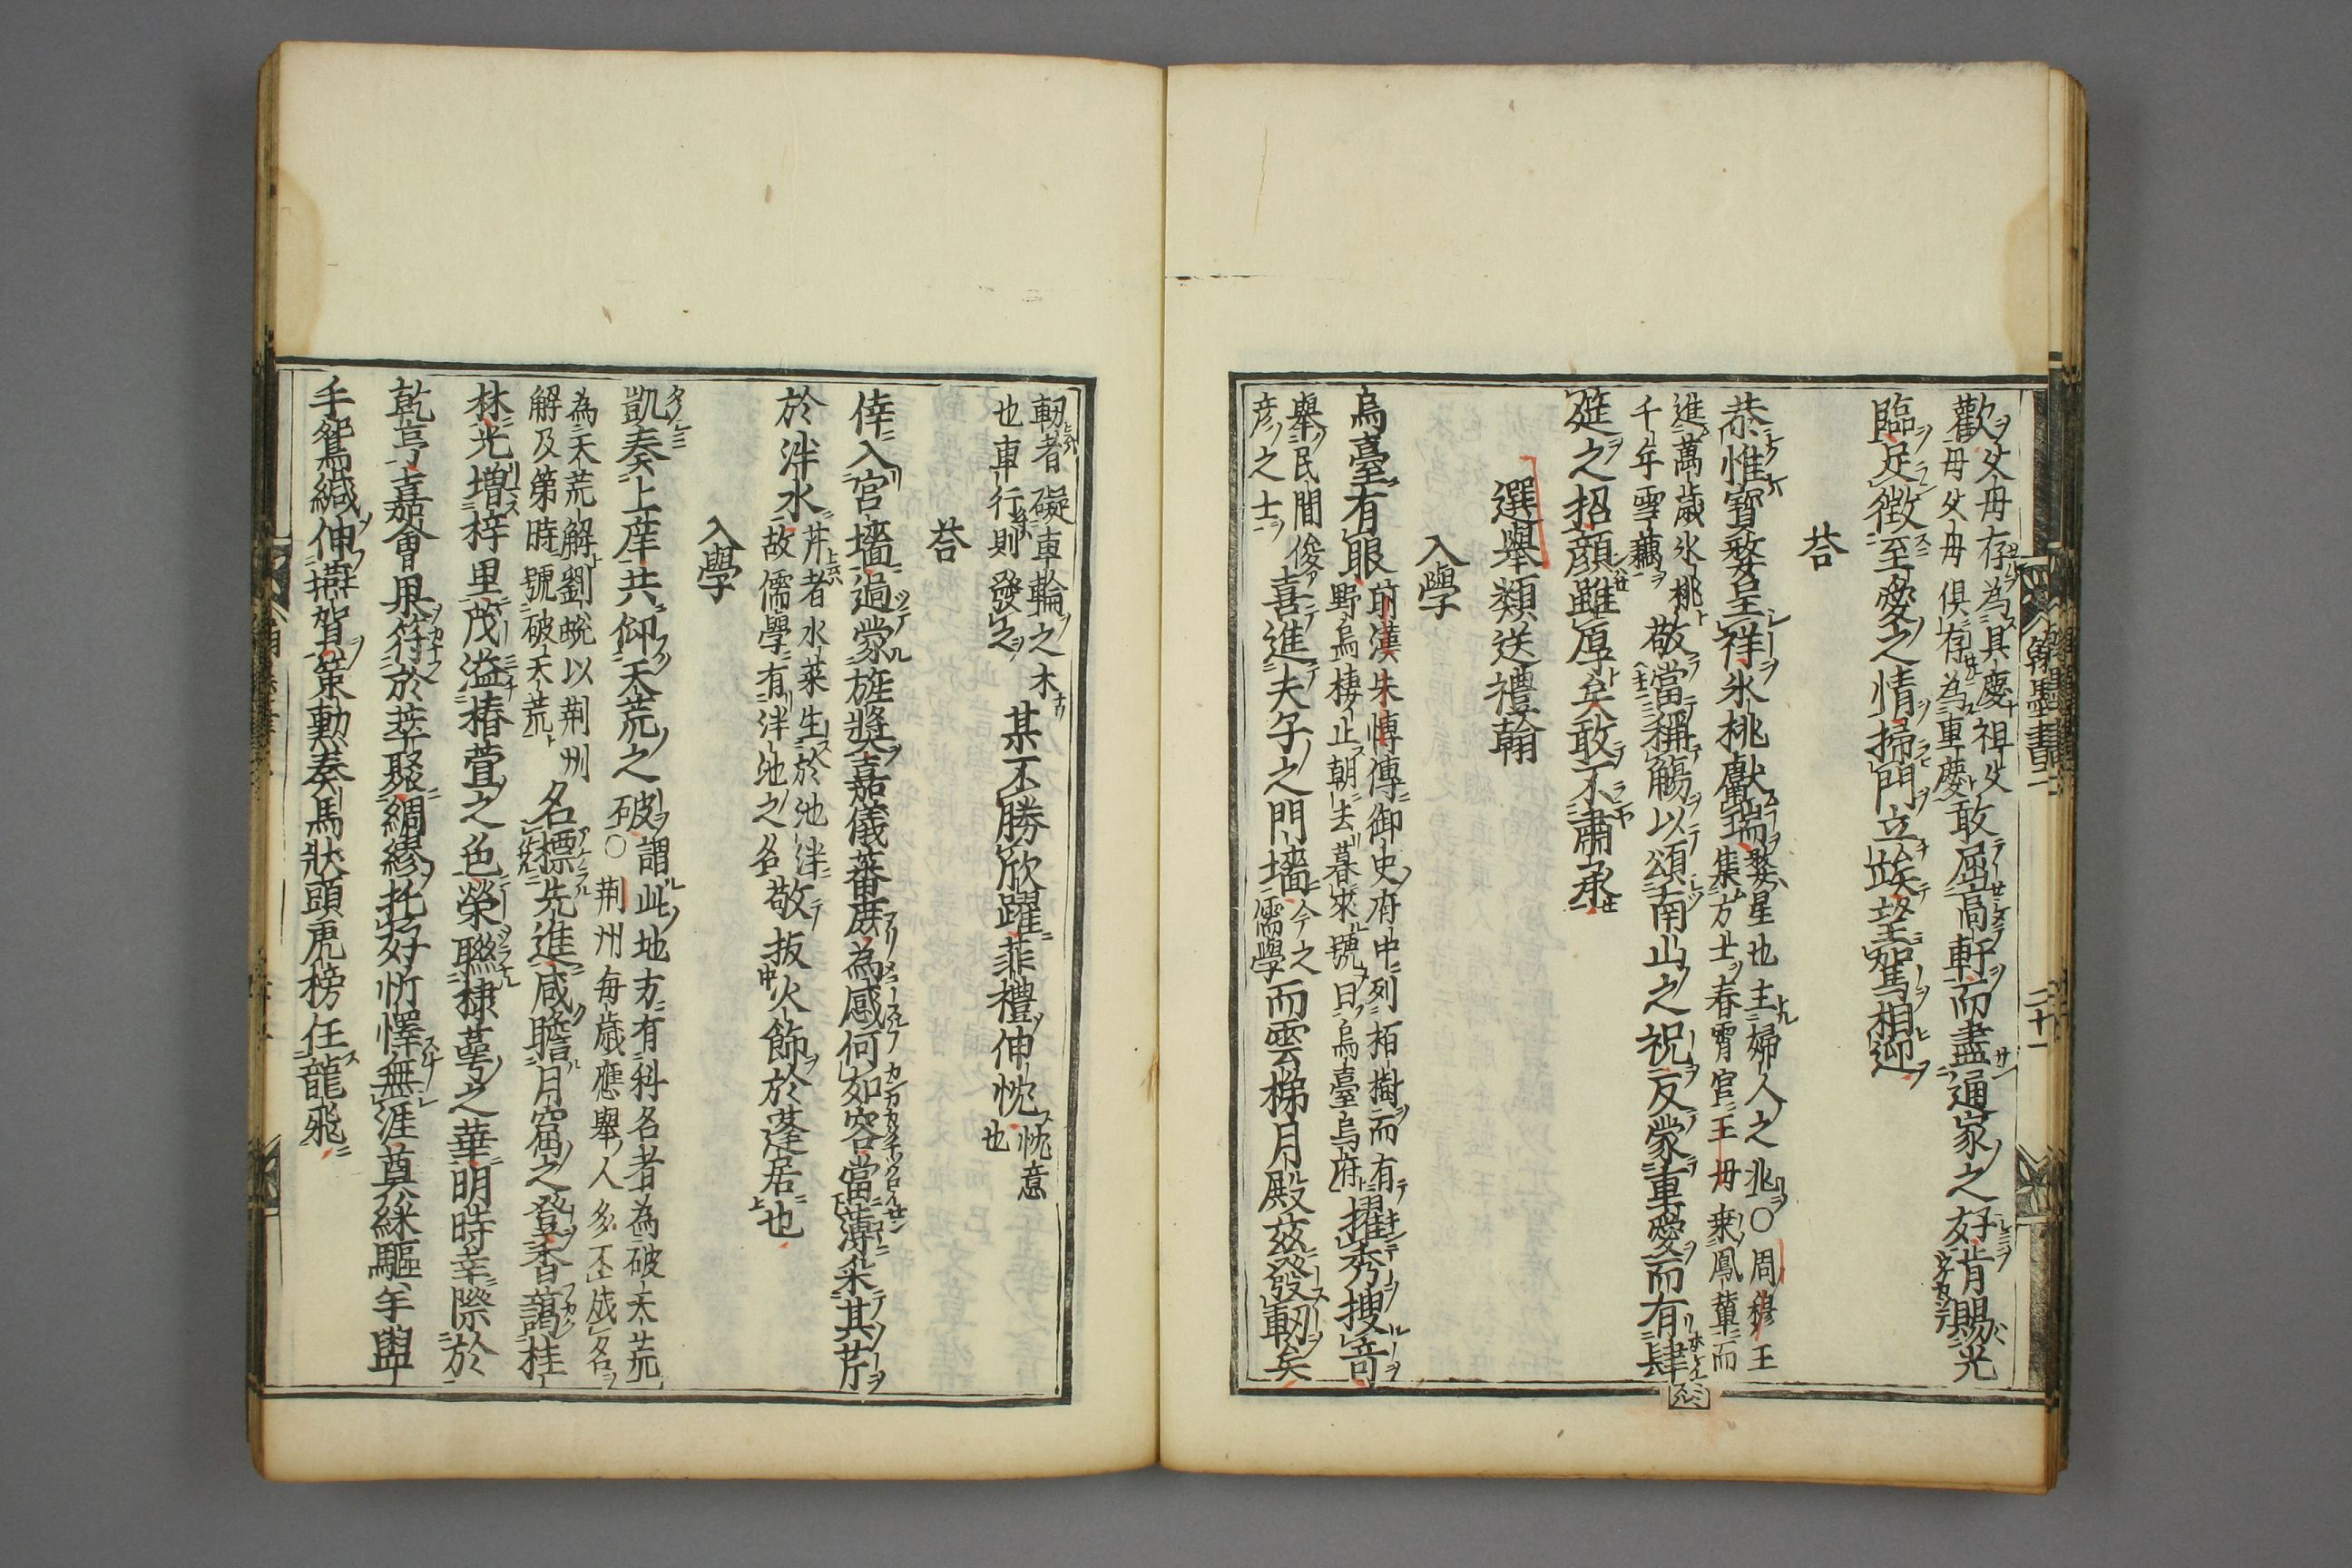 歡父母存為具慶祖父
母父母俱存為重慶敢屈高軒而盡通家之好肯賜光
臨足徴至愛之情掃門立竢望駕相迎
荅
恭惟寳婺呈祥氷桃獻瑞婺星也主婦人之兆○周穆王
集方士春霄宫王母乗鳳輦而
進萬歳氷桃
千年雪藕敬當稱觴以頌南山之祝反蒙車愛而有肆
筵之招顔雖厚矣敢不肅承
選舉類送禮翰
入學
烏臺有眼前漢朱愽傳御史府中列栢樹而有
野烏棲止朝去暮來號曰烏臺烏府擢秀搜竒
舉民間俊
彦之士喜進夫子之門墻今之
儒學而雲梯月殿兹發軔矣
軔者礙車輪之木
也車行則發之某不勝欣躍菲禮伸忱忱意
也
荅
倖入宫墻過蒙旌奬嘉儀蕃庶為感何如容當薄采其芹
於泮水芹者水菜生於池泮
故儒學有泮池之名敬拔火飾於蓬居也
入學
凱奏上庠共仰天荒之破謂此地方有科名者為破天荒
○荆州毎歳應舉人多不成名
為天荒解劉蛻以荆州
解及第時號破天荒名標先進咸瞻月窟之登香藹桂
林光増梓里茂溢椿萱之色榮聯棣萼之華明時幸際於
乾亨嘉會果符於萃聚綢繆托好忻懌無涯奠綵驅羊與
手鴛緘伸燕賀策勲奏馬狀頭虎榜任龍飛
翰墨書二
二十一